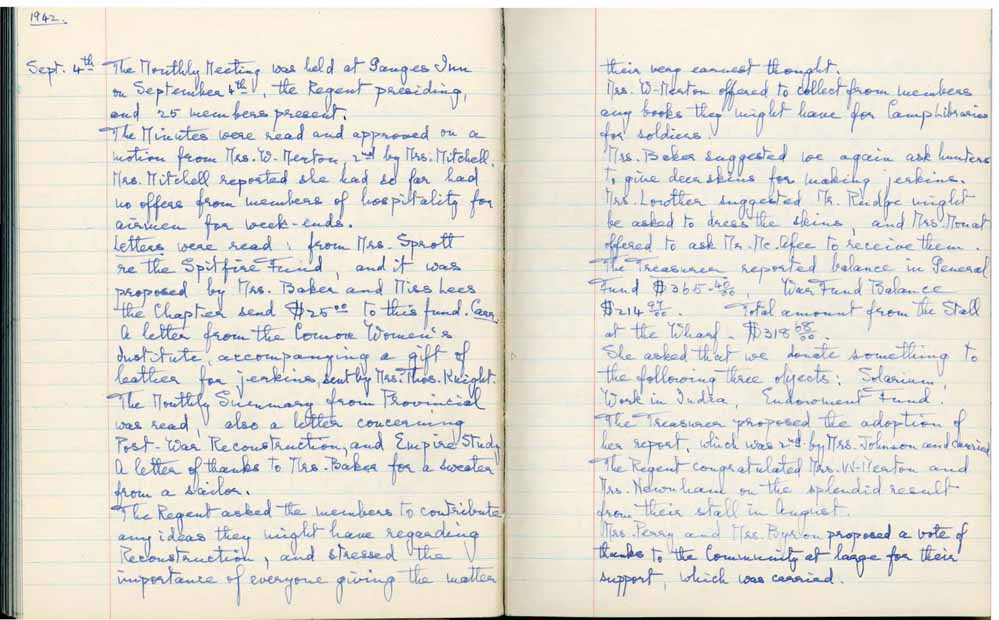 1942.
Sept. 4th The Monthly Meeting was held at Ganges Inn
on September 4th, the Regent presiding,
and 25 members present.
The Minutes were read and approved on a
motion from Mrs. W. Merton, 2nd by Mrs. Mitchell.
Mrs. Mitchell reported she had so far had
no offers from members of hospitality for
airmen for week-ends.
Letters were read : from Mrs. Sprott
re the Spitfire Fund, and it was
proposed by Mrs. Baker and Miss Lees
the Chapter send $25.00 to this fund. Carr.
A letter from the Comox Women's
Institute, accompanying a gift of
leather for jerkins, sent by Mrs. Thos. Knight.
The Monthly Summary from Provincial
was read, also a letter concerning
Post-War Reconstruction, and Empire Study
A letter of thanks to Mrs. Baker for a sweater
from a sailor.
The Regent asked the members to contribute
any ideas they might have regarding
Reconstruction, and stressed the
importance of everyone giving the matter
their very earnest thought.
Mrs. W-Merton offered to collect from members
any books they might have for Camp Libraries
for soldiers.
Mrs. Baker suggested we again ask hunters
to give deerskins for making jerkins.
Mrs. Lowther suggested Mr. Rudge might
be asked to dress the skins, and Mrs. Mouat
offered to ask Mr. Mc.Afee to receive them.
The Treasurer reported balance in General
Fund $365-40/00, War Fund Balance
$214 97/00. Total amount from the Stall
at the Wharf - $318 68/00.
She asked that we donate something to
the following three objects: Solarium,
Work in India, Endowment Fund.
The Treasurer proposed the adoption of
her report, which was 2nd by Mrs. Johnson and carried
The Regent congratulated Mrs. W-Merton and
Mrs. Newnham on the splendid result
from their stall in August.
Mrs. Perry and Mrs. Byron proposed a vote of
thanks to the Community at large for their
support, which was carried.